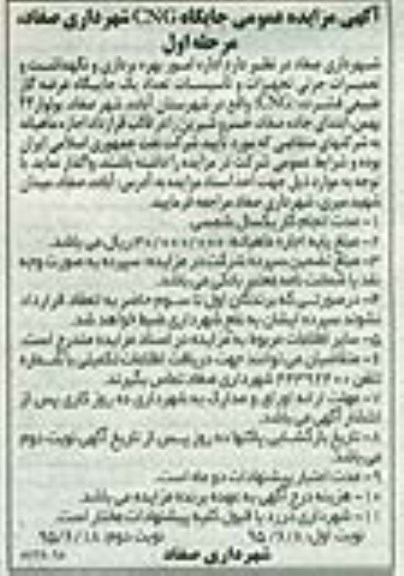 آگهی مزایده عمومی جایگاه CNG شهرداری صفاد
مرحله اول
شهرداری صفاد در نظر دارد اداره امور بهره برداری و نگهداشت و
تعمیرات جزئی تجهیزات و تاسیسات تعداد یک جایگاه عرضه گاز
طبیعی فشرده (CNG) واقع در شهرستان آباده، شهر صفاد، بولوار ۲۲
بهمن، ابتدای جاده صفاد، خسرو شیرین را در قالب قرارداد اجاره ماهیانه
به شرکتهای متقاضی که مورد تأیید شرکت نفت جمهوری اسلامی ایران
بوده و شرایط عمومی شرکت در مزایده را داشته باشند واگذار نماید. با
توجه به موارد ذیل جهت اخذ اسناد مزایده به آدرس: آباده، صفاد، میدان
شهید شهرداری صفاد مراجعه فرمایید.
۱- مدت انجام کار یکسال شمسی
۲- مبلغ پایه اجاره ماهیانه ریال می باشد.
۳- مبلغ تضمین سپرده شرکت در مزایده: سپرده به صورت وجه
نقد یا ضمانت نامه معتبر بانکی می باشد.
۴- در صورتی که برندگان اول تا سوم حاضر به انعقاد قرارداد
نشوند سپرده ایشان به نفع شهرداری ضبط خواهد شد.
۵- سایر اطلاعات مربوط به مزایده در اسناد مزایده مندرج است.
۶- متقاضیان می توانند جهت دریافت اطلاعات تکمیلی با شماره
تلفن شهرداری صفاد تماس بگیرند.
۷- مهلت ارائه اوراق و مدارک به شهرداری ده روز کاری پس از
انتشار آگهی می باشد.
۸- تاریخ بازگشایی پاکتها ده روز پس از تاریخ آگهی نوبت دوم
می باشد.
۹- مدت اعتبار پیشنهادات دو ماه است.
۱۰- هزینه درج آگهی به عهده برنده مزایده می باشد.
۱۱- شهرداری در رد یا قبول کلیه پیشنهادات مختار است.
نوبت اول: ۹۵/۶/۸ نوبت دوم: ۹۵/۶/۱۸
شهرداری صفاد